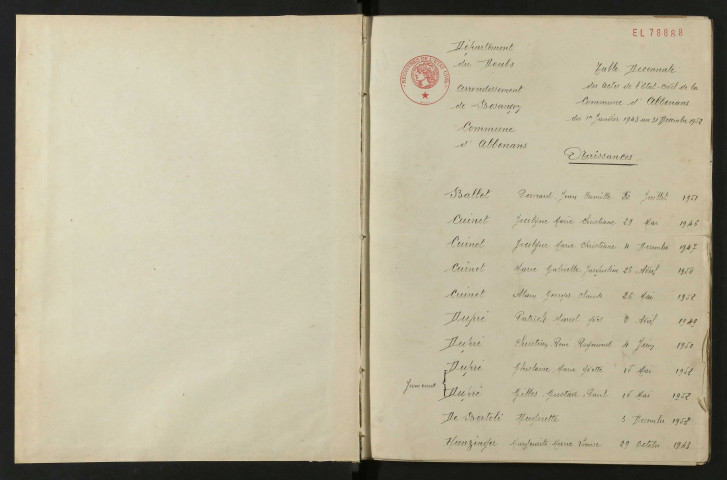 EL 78888
Département
du Doubs
Arrondissement
de Besançon
Commune
d'Abbenans
REGISTRES DE L'ETAT CIVIL
Table Décennale
des Actes de l'Etat-civil de la
Commune d'Abbenans
du 1er Janvier 1943 au 31 Décembre 1952
Naissances
Ballet Bernard Jean Camille Juillet 1951
Cuinet Jocelyne Marie Christiane 29 Mai 1946
Cuinet Jocelyne Marie Christiane 11 Décembre 1947
Cuinet Marie Gabrielle Jacqueline 25 Avril 1950
Cuinet Alain Georges Claude 26 Mai 1952
Dupré Patrick Marcel 8 Avril 1949
Dupré Christian René Raymond 4 Juin 1950
Dupré Ghislaine Marie 16 Mai 1952
Dupré Gilles Gustave Paul 16 Mai 1952
De Bortoli Huguette 5 Décembre 1952
Hunzinger Marguerite Marie 29 Octobre 1943